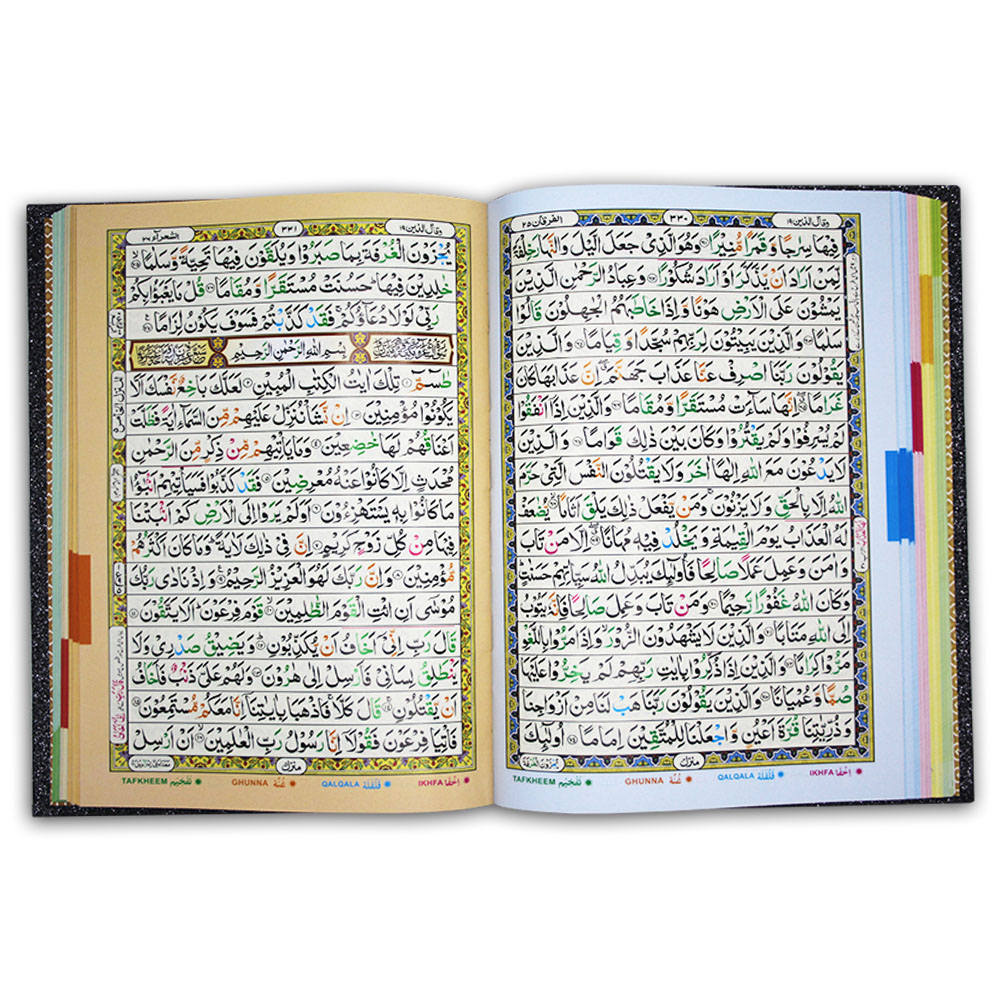 وقال الذين ۱۹ ۳۳۰ الفرقان ۲۵
فِيْهَا سِرٰجًا وَّقَمَرًا مُّنِيْرًا ﴿۶۱﴾ وَهُوَ الَّذِيْ جَعَلَ الَّيْلَ وَالنَّهَارَ خِلْفَةً
لِّمَنْ اَرَادَ اَنْ يَّذَّكَّرَ اَوْ اَرَادَ شُكُوْرًا ﴿۶۲﴾ وَعِبَادُ الرَّحْمٰنِ الَّذِيْنَ
يَمْشُوْنَ عَلَى الْاَرْضِ هَوْنًا وَّاِذَا خَاطَبَهُمُ الْجٰهِلُوْنَ قَالُوْا
سَلٰمًا ﴿۶۳﴾ وَالَّذِيْنَ يَبِيْتُوْنَ لِرَبِّهِمْ سُجَّدًا وَّقِيَامًا ﴿۶۴﴾ وَالَّذِيْنَ
يَقُوْلُوْنَ رَبَّنَا اصْرِفْ عَنَّا عَذَابَ جَهَنَّمَ اِنَّ عَذَابَهَا كَانَ
غَرَامًا ﴿۶۵﴾ اِنَّهَا سَآءَتْ مُسْتَقَرًّا وَّمُقَامًا ﴿۶۶﴾ وَالَّذِيْنَ اِذَا اَنْفَقُوْا
لَمْ يُسْرِفُوْا وَلَمْ يَقْتُرُوْا وَكَانَ بَيْنَ ذٰلِكَ قَوَامًا ﴿۶۷﴾ وَالَّذِيْنَ
لَا يَدْعُوْنَ مَعَ اللّٰهِ اِلٰهًا اٰخَرَ وَلَا يَقْتُلُوْنَ النَّفْسَ الَّتِيْ حَرَّمَ
اللّٰهُ اِلَّا بِالْحَقِّ وَلَا يَزْنُوْنَ وَمَنْ يَّفْعَلْ ذٰلِكَ يَلْقَ اَثَامًا ﴿۶۸﴾ يُّضٰعَفْ
لَهُ الْعَذَابُ يَوْمَ الْقِيٰمَةِ وَيَخْلُدْ فِيْهٖ مُهَانًا ﴿۶۹﴾ اِلَّا مَنْ تَابَ
وَاٰمَنَ وَعَمِلَ عَمَلًا صَالِحًا فَاُولٰٓئِكَ يُبَدِّلُ اللّٰهُ سَيِّاٰتِهِمْ حَسَنٰتٍ
وَكَانَ اللّٰهُ غَفُوْرًا رَّحِيْمًا ﴿۷۰﴾ وَمَنْ تَابَ وَعَمِلَ صَالِحًا فَاِنَّهٗ يَتُوْبُ
اِلَى اللّٰهِ مَتَابًا ﴿۷۱﴾ وَالَّذِيْنَ لَا يَشْهَدُوْنَ الزُّوْرَ وَاِذَا مَرُّوْا بِاللَّغْوِ
مَرُّوْا كِرَامًا ﴿۷۲﴾ وَالَّذِيْنَ اِذَا ذُكِّرُوْا بِاٰيٰتِ رَبِّهِمْ لَمْ يَخِرُّوْا عَلَيْهَا
صُمًّا وَّعُمْيَانًا ﴿۷۳﴾ وَالَّذِيْنَ يَقُوْلُوْنَ رَبَّنَا هَبْ لَنَا مِنْ اَزْوَاجِنَا
وَذُرِّيّٰتِنَا قُرَّةَ اَعْيُنٍ وَّاجْعَلْنَا لِلْمُتَّقِيْنَ اِمَامًا ﴿۷۴﴾ اُولٰٓئِكَ
منزل يُجْزَوْنَ الْغُرْفَةَ
اِخْفَا IKHFA قَلْقَلَة QALQALA غُنَّة GHUNNA تَفْخِيْم TAFKHEEM
وقال الذين ۱۹ ۳۳۱ الشعرآء ۲۶
يُجْزَوْنَ الْغُرْفَةَ بِمَا صَبَرُوْا وَيُلَقَّوْنَ فِيْهَا تَحِيَّةً وَّسَلٰمًا ﴿۷۵﴾
خٰلِدِيْنَ فِيْهَا حَسُنَتْ مُسْتَقَرًّا وَّمُقَامًا ﴿۷۶﴾ قُلْ مَا يَعْبَؤُا بِكُمْ
رَبِّيْ لَوْلَا دُعَآؤُكُمْ فَقَدْ كَذَّبْتُمْ فَسَوْفَ يَكُوْنُ لِزَامًا ﴿۷۷﴾
بِسْمِ اللّٰهِ الرَّحْمٰنِ الرَّحِيْمِ
طٰسٓمّٓ ﴿۱﴾ تِلْكَ اٰيٰتُ الْكِتٰبِ الْمُبِيْنِ ﴿۲﴾ لَعَلَّكَ بَاخِعٌ نَّفْسَكَ اَلَّا
يَكُوْنُوْا مُؤْمِنِيْنَ ﴿۳﴾ اِنْ نَّشَاْ نُنَزِّلْ عَلَيْهِمْ مِّنَ السَّمَآءِ اٰيَةً فَظَلَّتْ
اَعْنَاقُهُمْ لَهَا خٰضِعِيْنَ ﴿۴﴾ وَمَا يَاْتِيْهِمْ مِّنْ ذِكْرٍ مِّنَ الرَّحْمٰنِ
مُحْدَثٍ اِلَّا كَانُوْا عَنْهُ مُعْرِضِيْنَ ﴿۵﴾ فَقَدْ كَذَّبُوْا فَسَيَاْتِيْهِمْ اَنْۢبٰٓؤُا
مَا كَانُوْا بِهٖ يَسْتَهْزِءُوْنَ ﴿۶﴾ اَوَلَمْ يَرَوْا اِلَى الْاَرْضِ كَمْ اَنْۢبَتْنَا
فِيْهَا مِنْ كُلِّ زَوْجٍ كَرِيْمٍ ﴿۷﴾ اِنَّ فِيْ ذٰلِكَ لَاٰيَةً وَمَا كَانَ اَكْثَرُهُمْ
مُّؤْمِنِيْنَ ﴿۸﴾ وَاِنَّ رَبَّكَ لَهُوَ الْعَزِيْزُ الرَّحِيْمُ ﴿۹﴾ وَاِذْ نَادٰى رَبُّكَ
مُوْسٰٓى اَنِ ائْتِ الْقَوْمَ الظّٰلِمِيْنَ ﴿۱۰﴾ قَوْمَ فِرْعَوْنَ اَلَا يَتَّقُوْنَ ﴿۱۱﴾
قَالَ رَبِّ اِنِّيْٓ اَخَافُ اَنْ يُّكَذِّبُوْنِ ﴿۱۲﴾ وَيَضِيْقُ صَدْرِيْ وَلَا
يَنْطَلِقُ لِسَانِيْ فَاَرْسِلْ اِلٰى هٰرُوْنَ ﴿۱۳﴾ وَلَهُمْ عَلَيَّ ذَنْۢبٌ فَاَخَافُ
اَنْ يَّقْتُلُوْنِ ﴿۱۴﴾ قَالَ كَلَّا فَاذْهَبَا بِاٰيٰتِنَآ اِنَّا مَعَكُمْ مُّسْتَمِعُوْنَ ﴿۱۵﴾
فَاْتِيَا فِرْعَوْنَ فَقُوْلَآ اِنَّا رَسُوْلُ رَبِّ الْعٰلَمِيْنَ ﴿۱۶﴾ اَنْ اَرْسِلْ
منزل
اِخْفَا IKHFA قَلْقَلَة QALQALA غُنَّة GHUNNA تَفْخِيْم TAFKHEEM